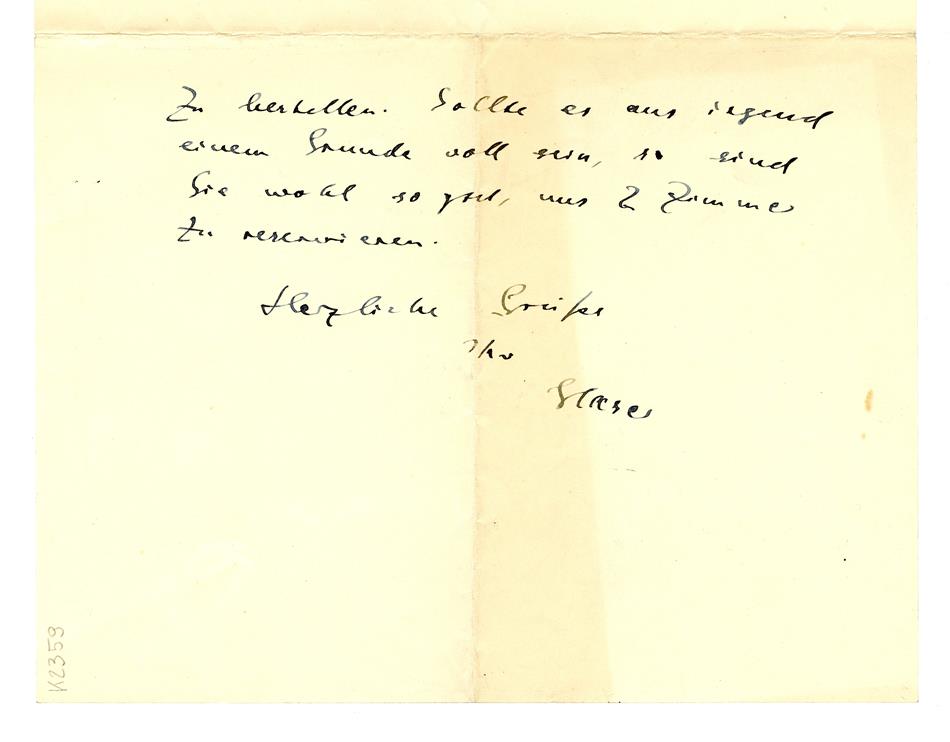 zu bestellen. Sollte es aus irgend
einem Grunde voll sein, so sind
Sie wohl so gut, uns 2 Zimmer
zu reservieren.
Herzliche Grüße
Ihr
Glaser
K2359